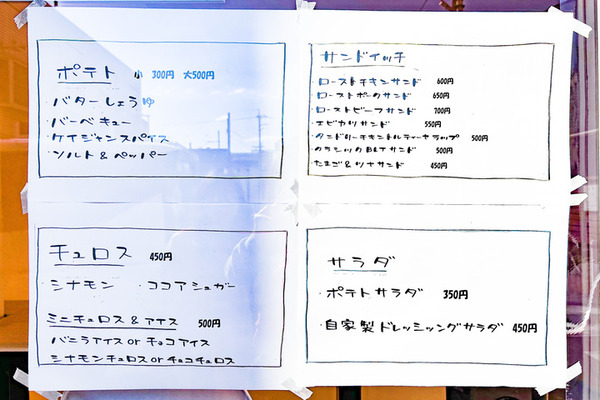 ポテト 小 300円 大500円
・バターしょうゆ
・バーベキュー
・ケイジャンスパイス
・ソルト&ペッパー
サンドイッチ
・ローストチキンサンド 600円
・ローストポークサンド 650円
・ローストビーフサンド 700円
・エビカツサンド 550円
・タンドリーチキントルティーヤラップ 500円
・クラシックBLTサンド 500円
・たまご&ツナサンド 450円
チュロス 450円
・シナモン ・ココアシュガー
ミニチュロス&アイス 500円
バニラアイス or チョコアイス
シナモンチュロス or チョコチュロス
サラダ
・ポテトサラダ 350円
・自家製ドレッシングサラダ 450円